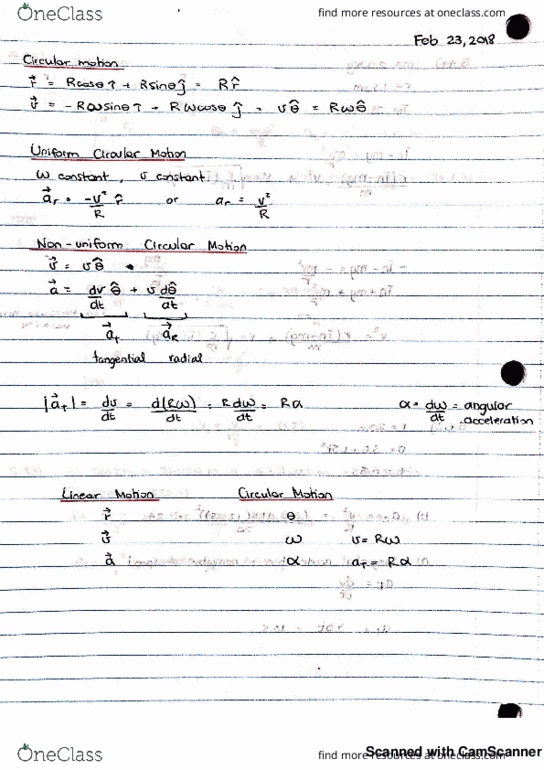 OneClass
find more resources at oneclass.com
Feb 23, 2018
Circular motion
r⃗ = Rcosθ î + Rsinθ ĵ = R r̂
v⃗ = -Rωsinθ î + Rωcosθ ĵ = v θ̂ = Rω θ̂
Uniform Circular Motion
ω constant, v constant
a⃗r = -v²/R r̂ or ar = v²/R
Non-uniform Circular Motion
v⃗ = v θ̂
a⃗ = dv/dt θ̂ + v dθ̂/dt
a⃗t a⃗R
tangential radial
|a⃗t| = dv/dt = d(Rω)/dt = R dω/dt = Rα α = dω/dt = angular acceleration
Linear Motion Circular Motion
r⃗ θ
v⃗ ω v = Rω
a⃗ α aT = Rα
OneClass
find more resources at oneclass.com
Scanned with CamScanner